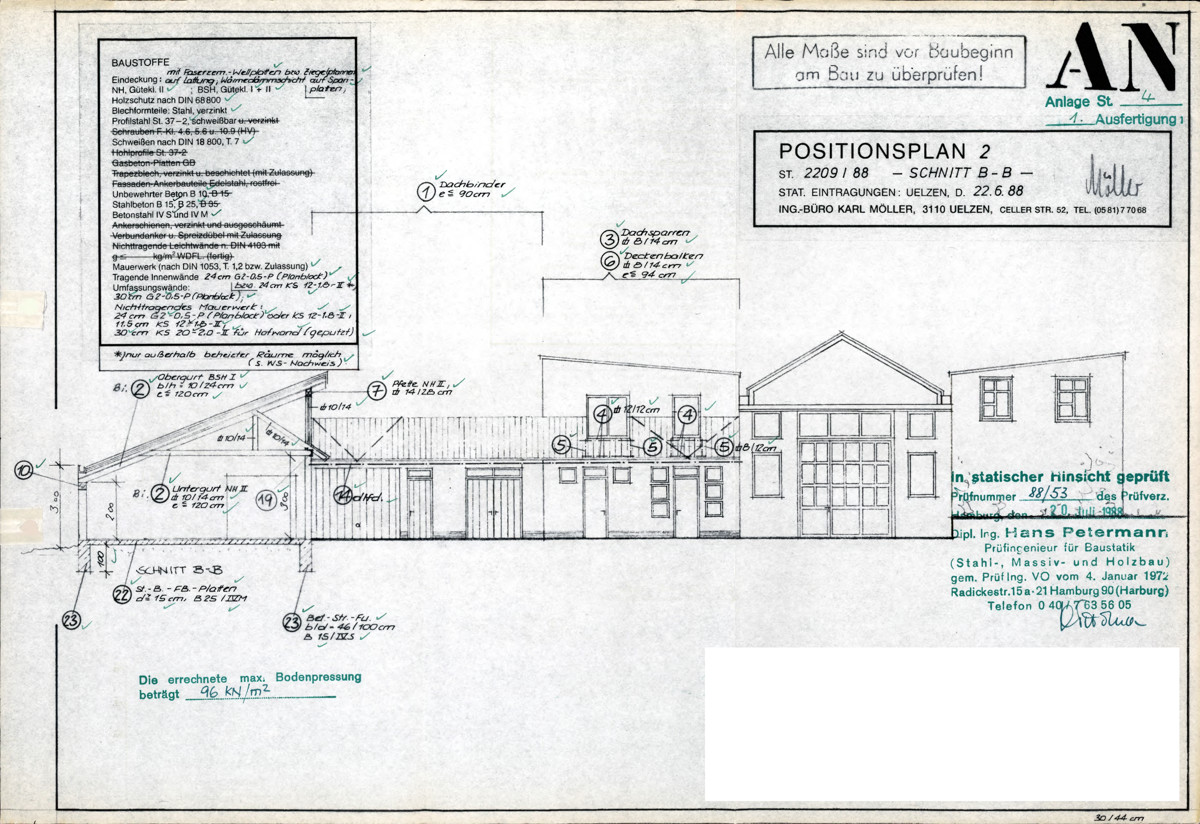 BAUSTOFFE
mit Faserzem.-Wellplatten bzw. Ziegelpfannen
Eindeckung: auf Lattung, Wärmedämmschicht auf Span-
NH, Gütekl. II ; BSH, Gütekl. I + II platten;
Holzschutz nach DIN 68800
Blechformteile: Stahl, verzinkt
Profilstahl St. 37-2, schweißbar u. verzinkt
Schrauben F.-Kl. 4.6, 5.6 u. 10.9 (HV)
Schweißen nach DIN 18 800, T. 7
Hohlprofile St. 37-2
Gasbeton-Platten GB
Trapezblech, verzinkt u. beschichtet (mit Zulassung)
Fassaden-Ankerbauteile Edelstahl, rostfrei
Unbewehrter Beton B 10, B 15
Stahlbeton B 15, B 25, B 35
Betonstahl IV S und IV M
Ankerschienen, verzinkt und ausgeschäumt
Verbundanker u. Spreizdübel mit Zulassung
Nichttragende Leichtwände n. DIN 4103 mit
g ≤ kg/m² WDFL. (fertig)
Mauerwerk (nach DIN 1053, T. 1,2 bzw. Zulassung)
Tragende Innenwände 24 cm G2-0.5-P (Planblock)
Umfassungswände: bzw. 24 cm KS 12-1.8-II *)
30 cm G2-0.5-P (Planblock);
Nichttragendes Mauerwerk:
24 cm G2-0.5-P (Planblock) oder KS 12-1.8-II;
11.5 cm KS 12-1.8-II;
30 cm KS 20-2.0-II für Hofwand (geputzt)
*) nur außerhalb beheizter Räume möglich
(s. WS-Nachweis)
Alle Maße sind vor Baubeginn
am Bau zu überprüfen!
AN
Anlage St. 4
1. Ausfertigung
POSITIONSPLAN 2
ST. 2209 / 88 - SCHNITT B-B -
STAT. EINTRAGUNGEN: UELZEN, D. 22.6.88
ING.-BÜRO KARL MÖLLER, 3110 UELZEN, CELLER STR. 52, TEL. (05 81) 7 70 68
Möller
1 Dachbinder
e ≤ 90 cm
3 Dachsparren
⌀ 8/14 cm
6 Deckenbalken
⌀ 8/14 cm
e ≤ 94 cm
Bi. 2 Obergurt BSH I
b/h = 10/24 cm
e = 120 cm
7 Pfette NH II;
⌀ 14/28 cm
⌀ 10/14
⌀ 10/14
⌀ 10/14
4 ⌀ 12/12 cm 4
5 5 5 ⌀ 8/12 cm
10
Bi. 2 Untergurt NH II
⌀ 10/14 cm
e = 120 cm
19
14 dlfd.
3.00
2.00
3.00
1.00
SCHNITT B-B
22 St.-B.-FB.-Platten
d ≥ 15 cm, B 25 / IV M
23
23 Bet.-Str.-Fu.
b/d = 46/100 cm
B 15 / IV S
Die errechnete max. Bodenpressung
beträgt 96 KN/m²
In statischer Hinsicht geprüft
Prüfnummer 88/53 des Prüfverz.
Hamburg, den 20. Juli 1988
Dipl. Ing. Hans Petermann
Prüfingenieur für Baustatik
(Stahl-, Massiv- und Holzbau)
gem. Prüfing. VO vom 4. Januar 1972
Radickestr. 15a · 21 Hamburg 90 (Harburg)
Telefon 0 40 / 7 63 56 05
30/44 cm